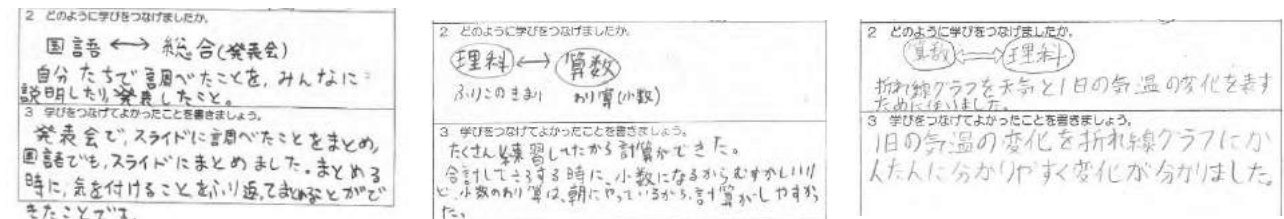 2 どのように学びをつなげましたか。
国語 ←→ 総合(発表会)
自分たちで調べたことを、みんなに
説明したり、発表したこと。
3 学びをつなげてよかったことを書きましょう。
発表会で、スライドに調べたことをまとめ、
国語でも、スライドにまとめました。まとめる
時に、気を付けることをふり返って、まとめることがで
きたことです。
2 どのように学びをつなげましたか。
理科 ←→ 算数
ふりこのきまり わり算(小数)
3 学びをつなげてよかったことを書きましょう。
たくさん練習してたから計算ができた。
合計して する時に、小数になるからむずかしいけ
ど、小数のわり算は、朝にやっているから、計算がしやすかっ
た。
2 どのように学びをつなげましたか。
算数 ←→ 理科
折れ線グラフを天気と1日の気温の変化を表す
ために使いました。
3 学びをつなげてよかったことを書きましょう。
1日の気温の変化を折れ線グラフにか
んたんに分かりやすく変化が分かりました。